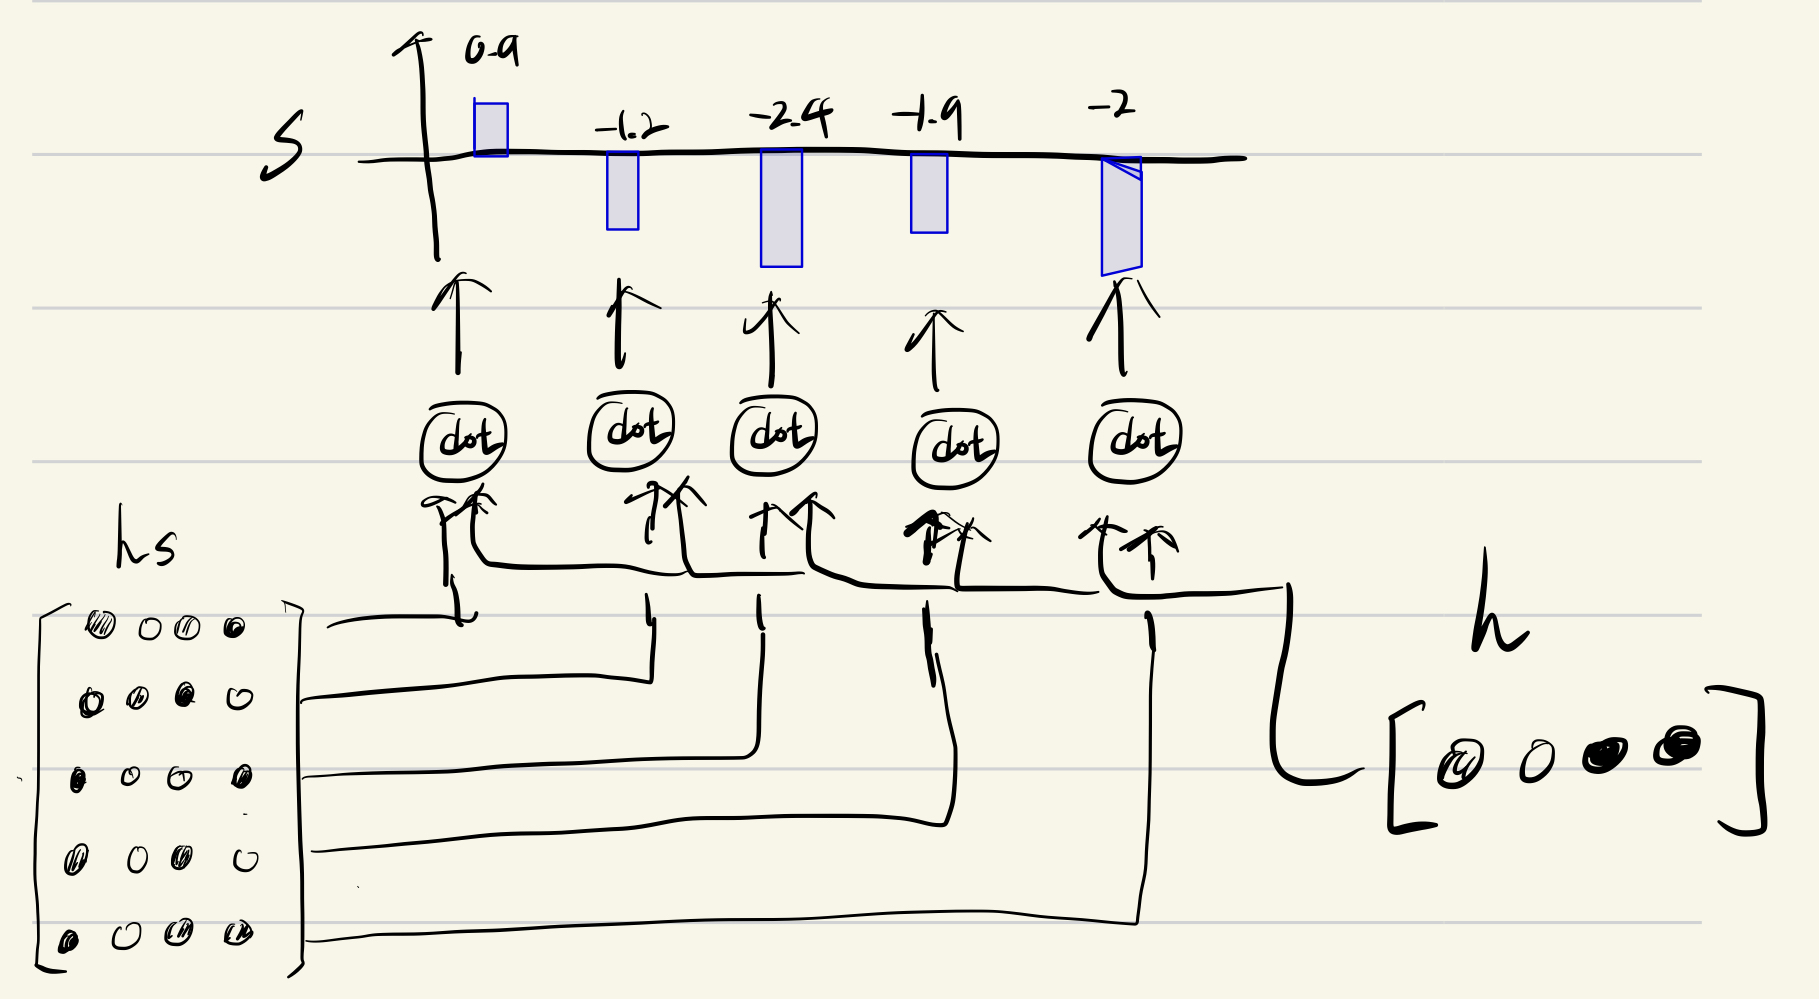 0.9
-1.2
-2.4
-1.9
-2
S
dot dot dot dot dot
hs
h